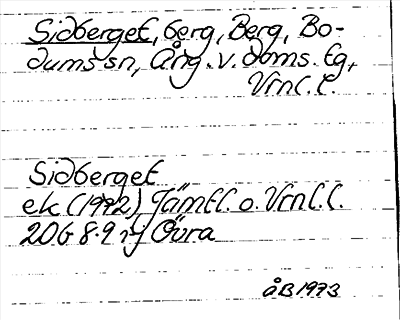 Sidberget, berg, Berg, Bo-
dums sn, Ång. v. doms. tg,
Vrnl. l.
Sidberget
ek (1972) Jämtl. o. Vrnl. l.
20G 8-9 i-j Övra
åB 1973